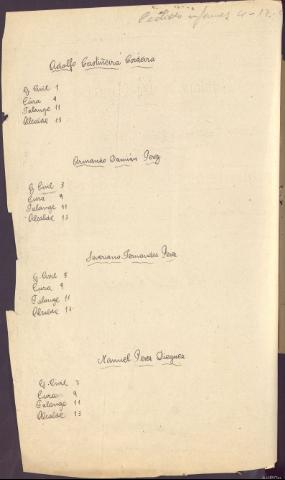 Pedidos informes 4-12-
Adolfo Castiñeira
G Civil 1
Cura 9
Falange 11
Alcalde 13
Armando Damián Perez
G. Civil 3
Cura 9
Falange 11
Alcalde 13
Severiano Fernandes Perez
G. Civil 5
Cura 9
Falange 11
Alcalde 13
Manuel Perez Dieguez
G. Civil 7
Cura 9
Falange 11
Alcalde 13